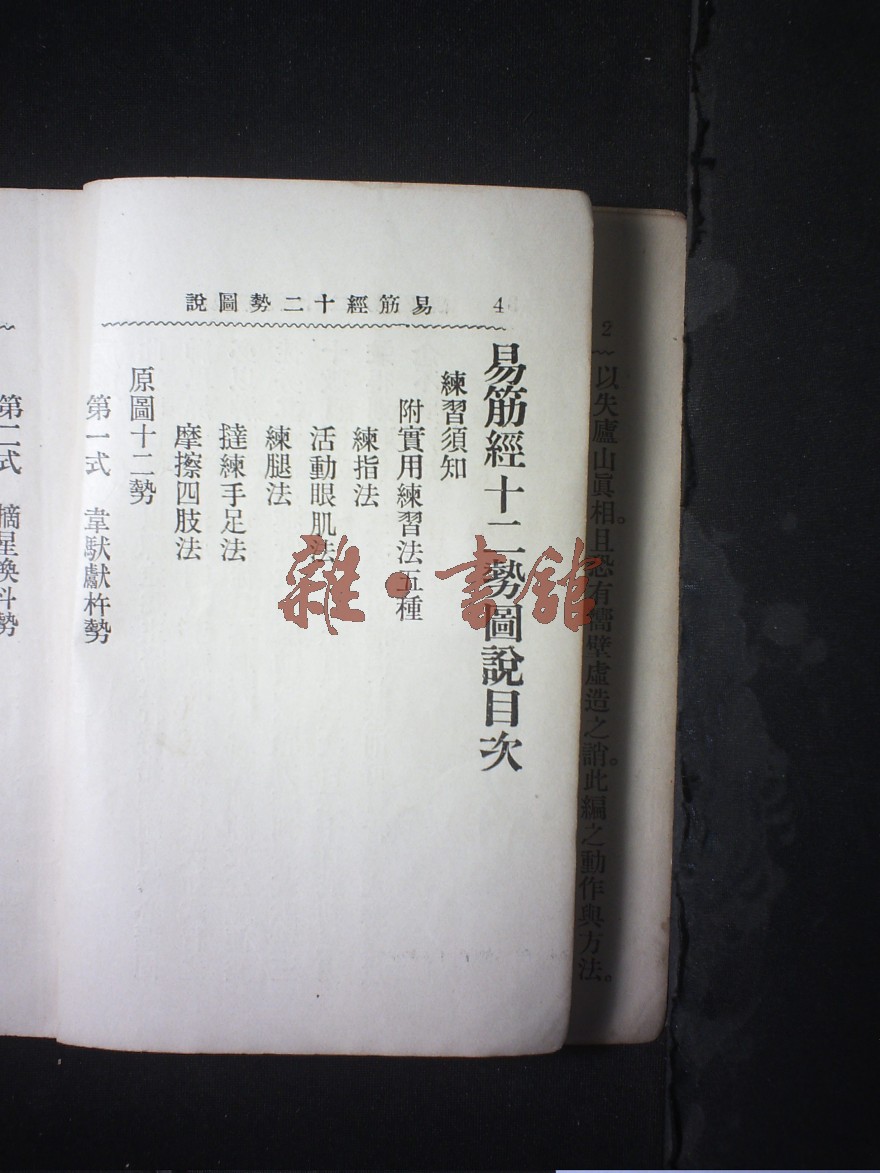 2
以失廬山眞相。且恐有嚮壁虛造之誚。此編之動作與方法。
4 易筋經十二勢圖說
易筋經十二勢圖說目次
練習須知
附實用練習法五種
練指法
活動眼肌法
練腿法
撻練手足法
摩擦四肢法
原圖十二勢
第一式 韋馱獻杵勢
第二式 摘星換斗勢
雜·書館